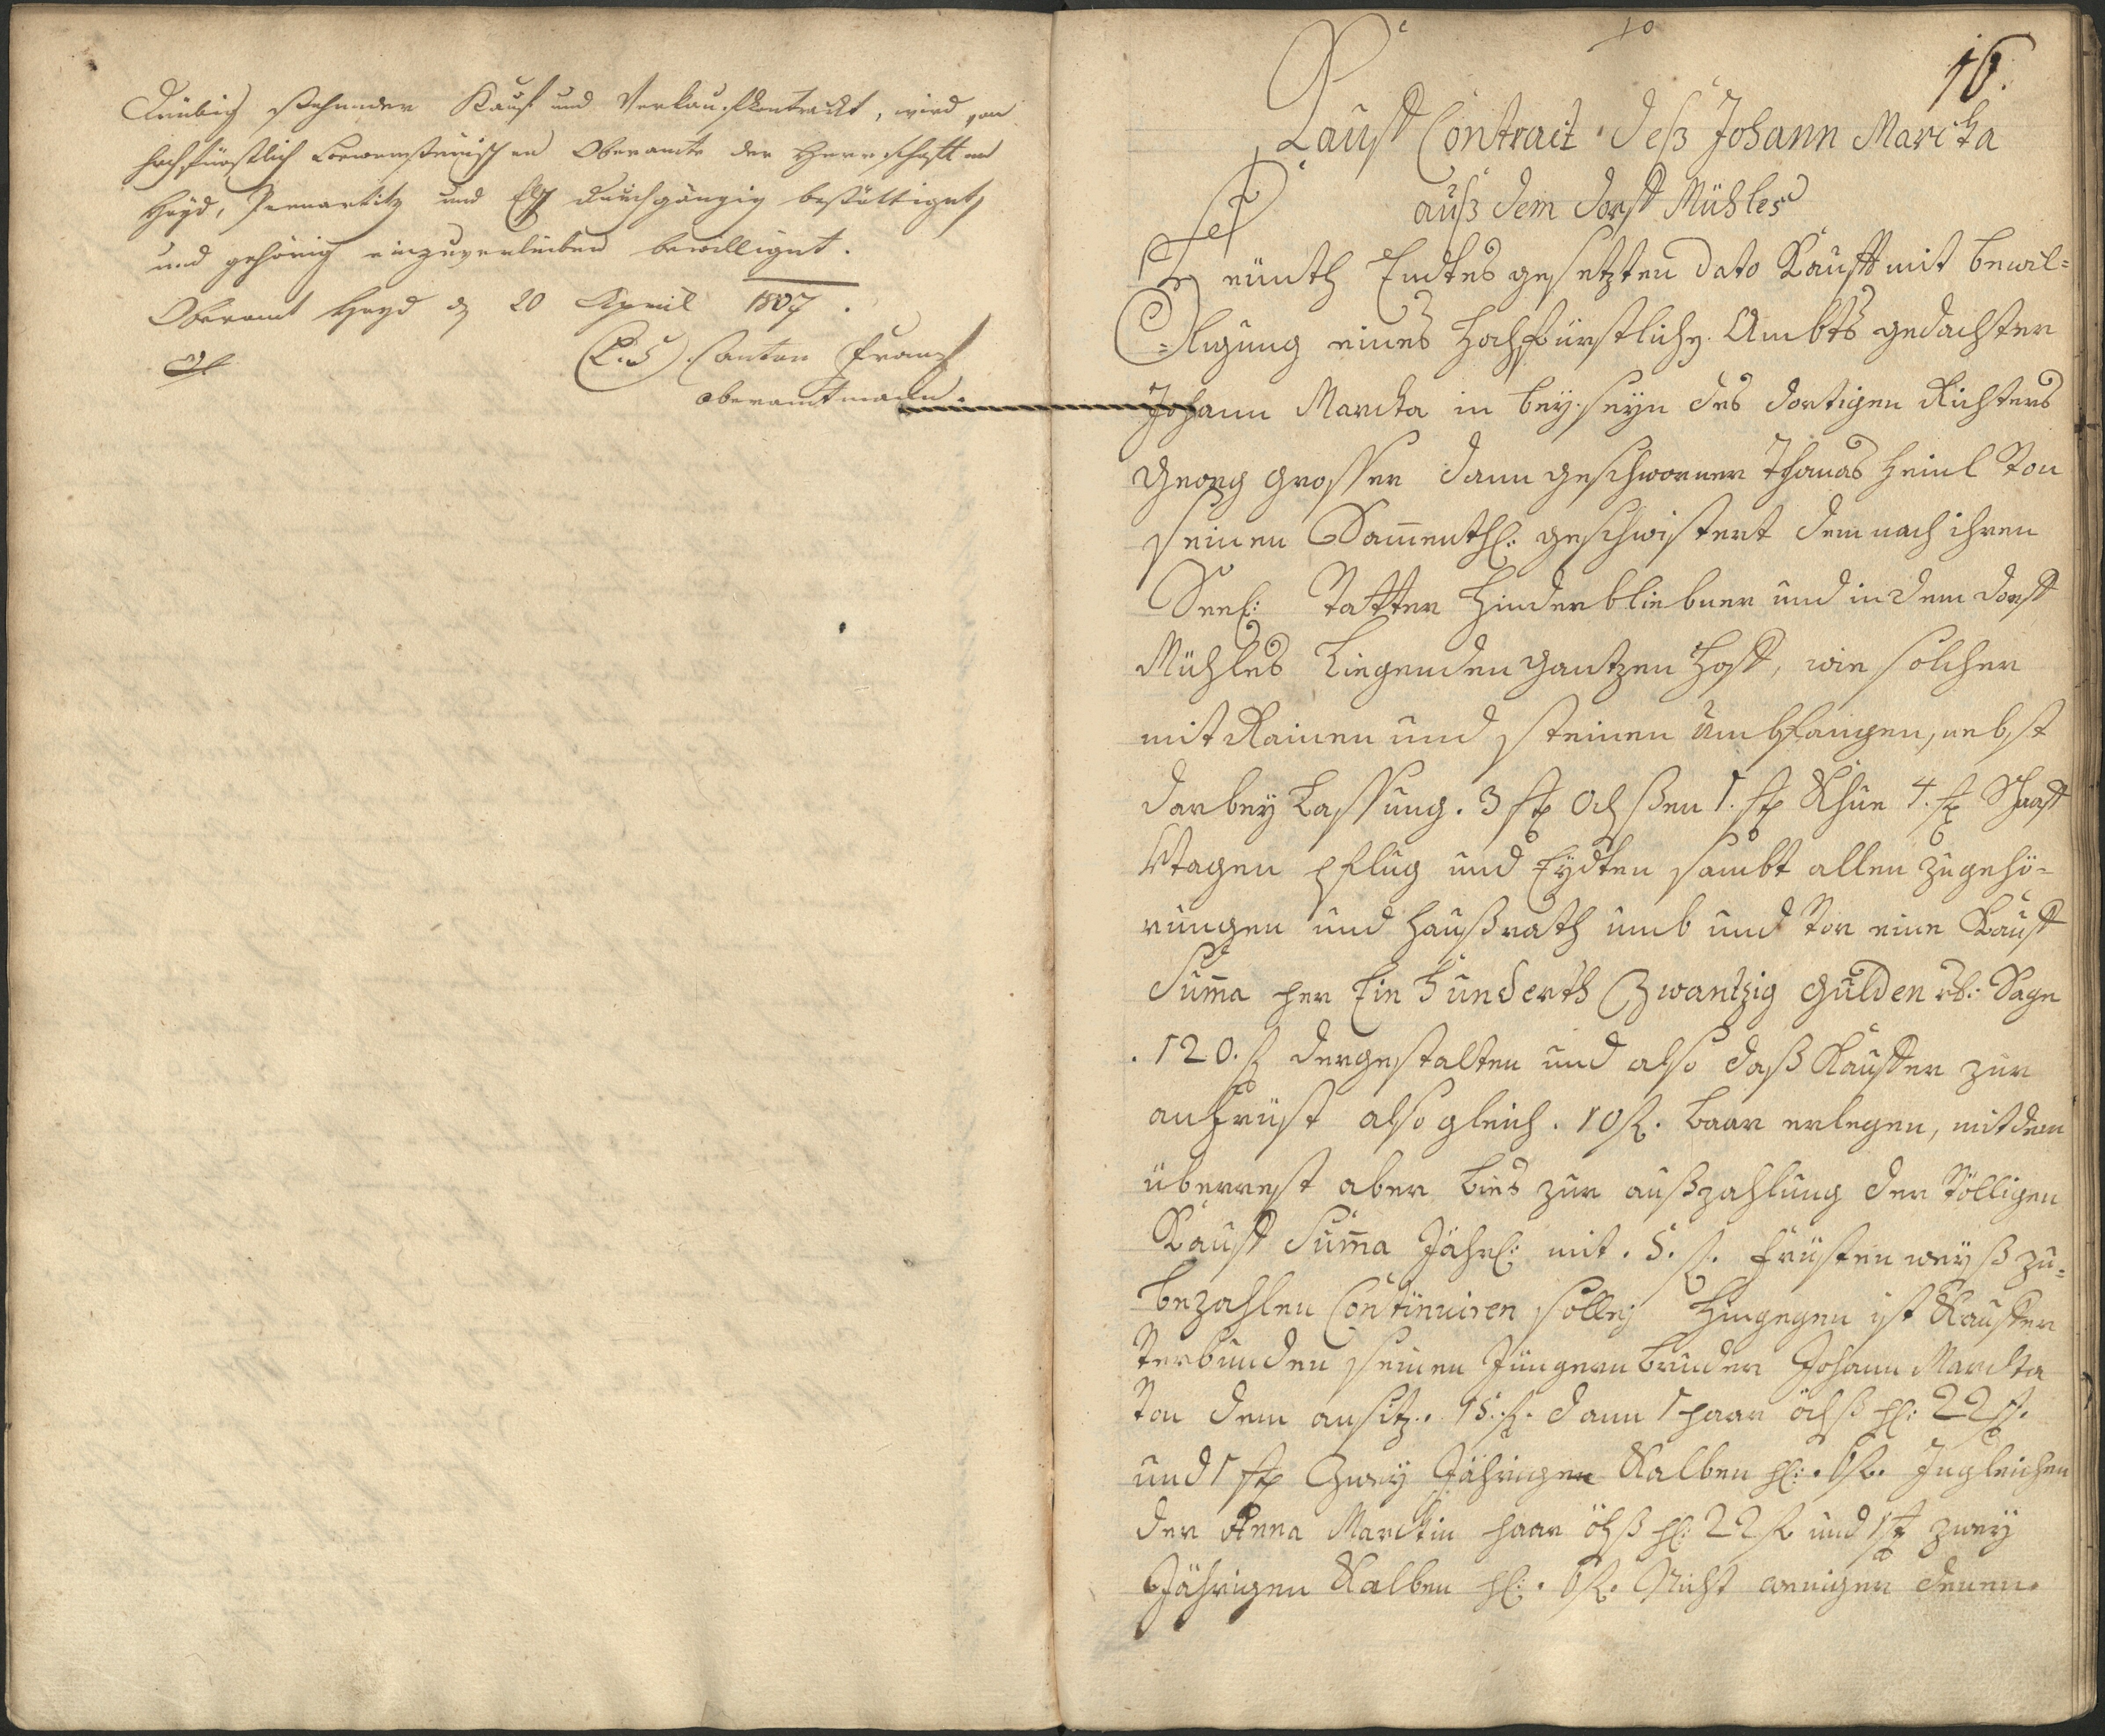 stehender Kauf und Verkaufskontrackt, wird von
hochfürstlich Loewensteinischen Oberamte der Herrschafften
Hayd, Pernartitz und Elsch durchgängig bestättiget,
und gehörig einzuverleiben bewilliget.
Oberamt Hayd den 20 April 1807.
(L.S) Anton Franz
oberamtmann.
10
16.
Kauff Contract deß Johann Marcka
auß dem dorff Mühles
Endtes gesetzten dato Kaufft mit bewil=
=ligung eines Hochfürstlichen Ambts gedachter
Johann Marcka in beyseyn des dortigen Richters
Georg Grosser dann geschworner Thomas Heinl Von
seinen Sammenthl: geschwistert dem nach ihren
Seel: Vatter Hinderbliebner und in dem dorff
Mühles Liegenden gantzen Hoff, wie solcher
mit Rainen und steinen umbfangen, nebst
darbey Lassung. 3 stk ochßen 1. stk Khue 4. stk Schaaff
Wagen pflug und Eydten sambt allen zugehö=
rungen und haußrath umb und Vor eine Kauff
Summa per Ein Hunderth Zwantzig Gulden rh: Sage
.120. fl dergestalten und also daß Kauffer zur
anfrist also gleich. 10 fl. baar erlegen, mit dem
überrest aber bies zur außzahlung der Völligen
Kauff Summa Jährl: mit. 5. fl. fristen weyß zu=
bezahlen Continuiren solle, Hingegen ist Kauffer
Verbunden seinen Jüngern bruder Johann Marckta
Von dem ansitz.. 15. fl. dann 1 paar öchß pl: 22 fl.
und 1 stk Zwey Jähringen Kalben pl: . 6 fl. Ingleichen
der Anna Marcktin paar öchß pl: 22 fl und 1 stk zwey
Jährigen Kalben pl: . 6 fl. Nicht weniger denen.